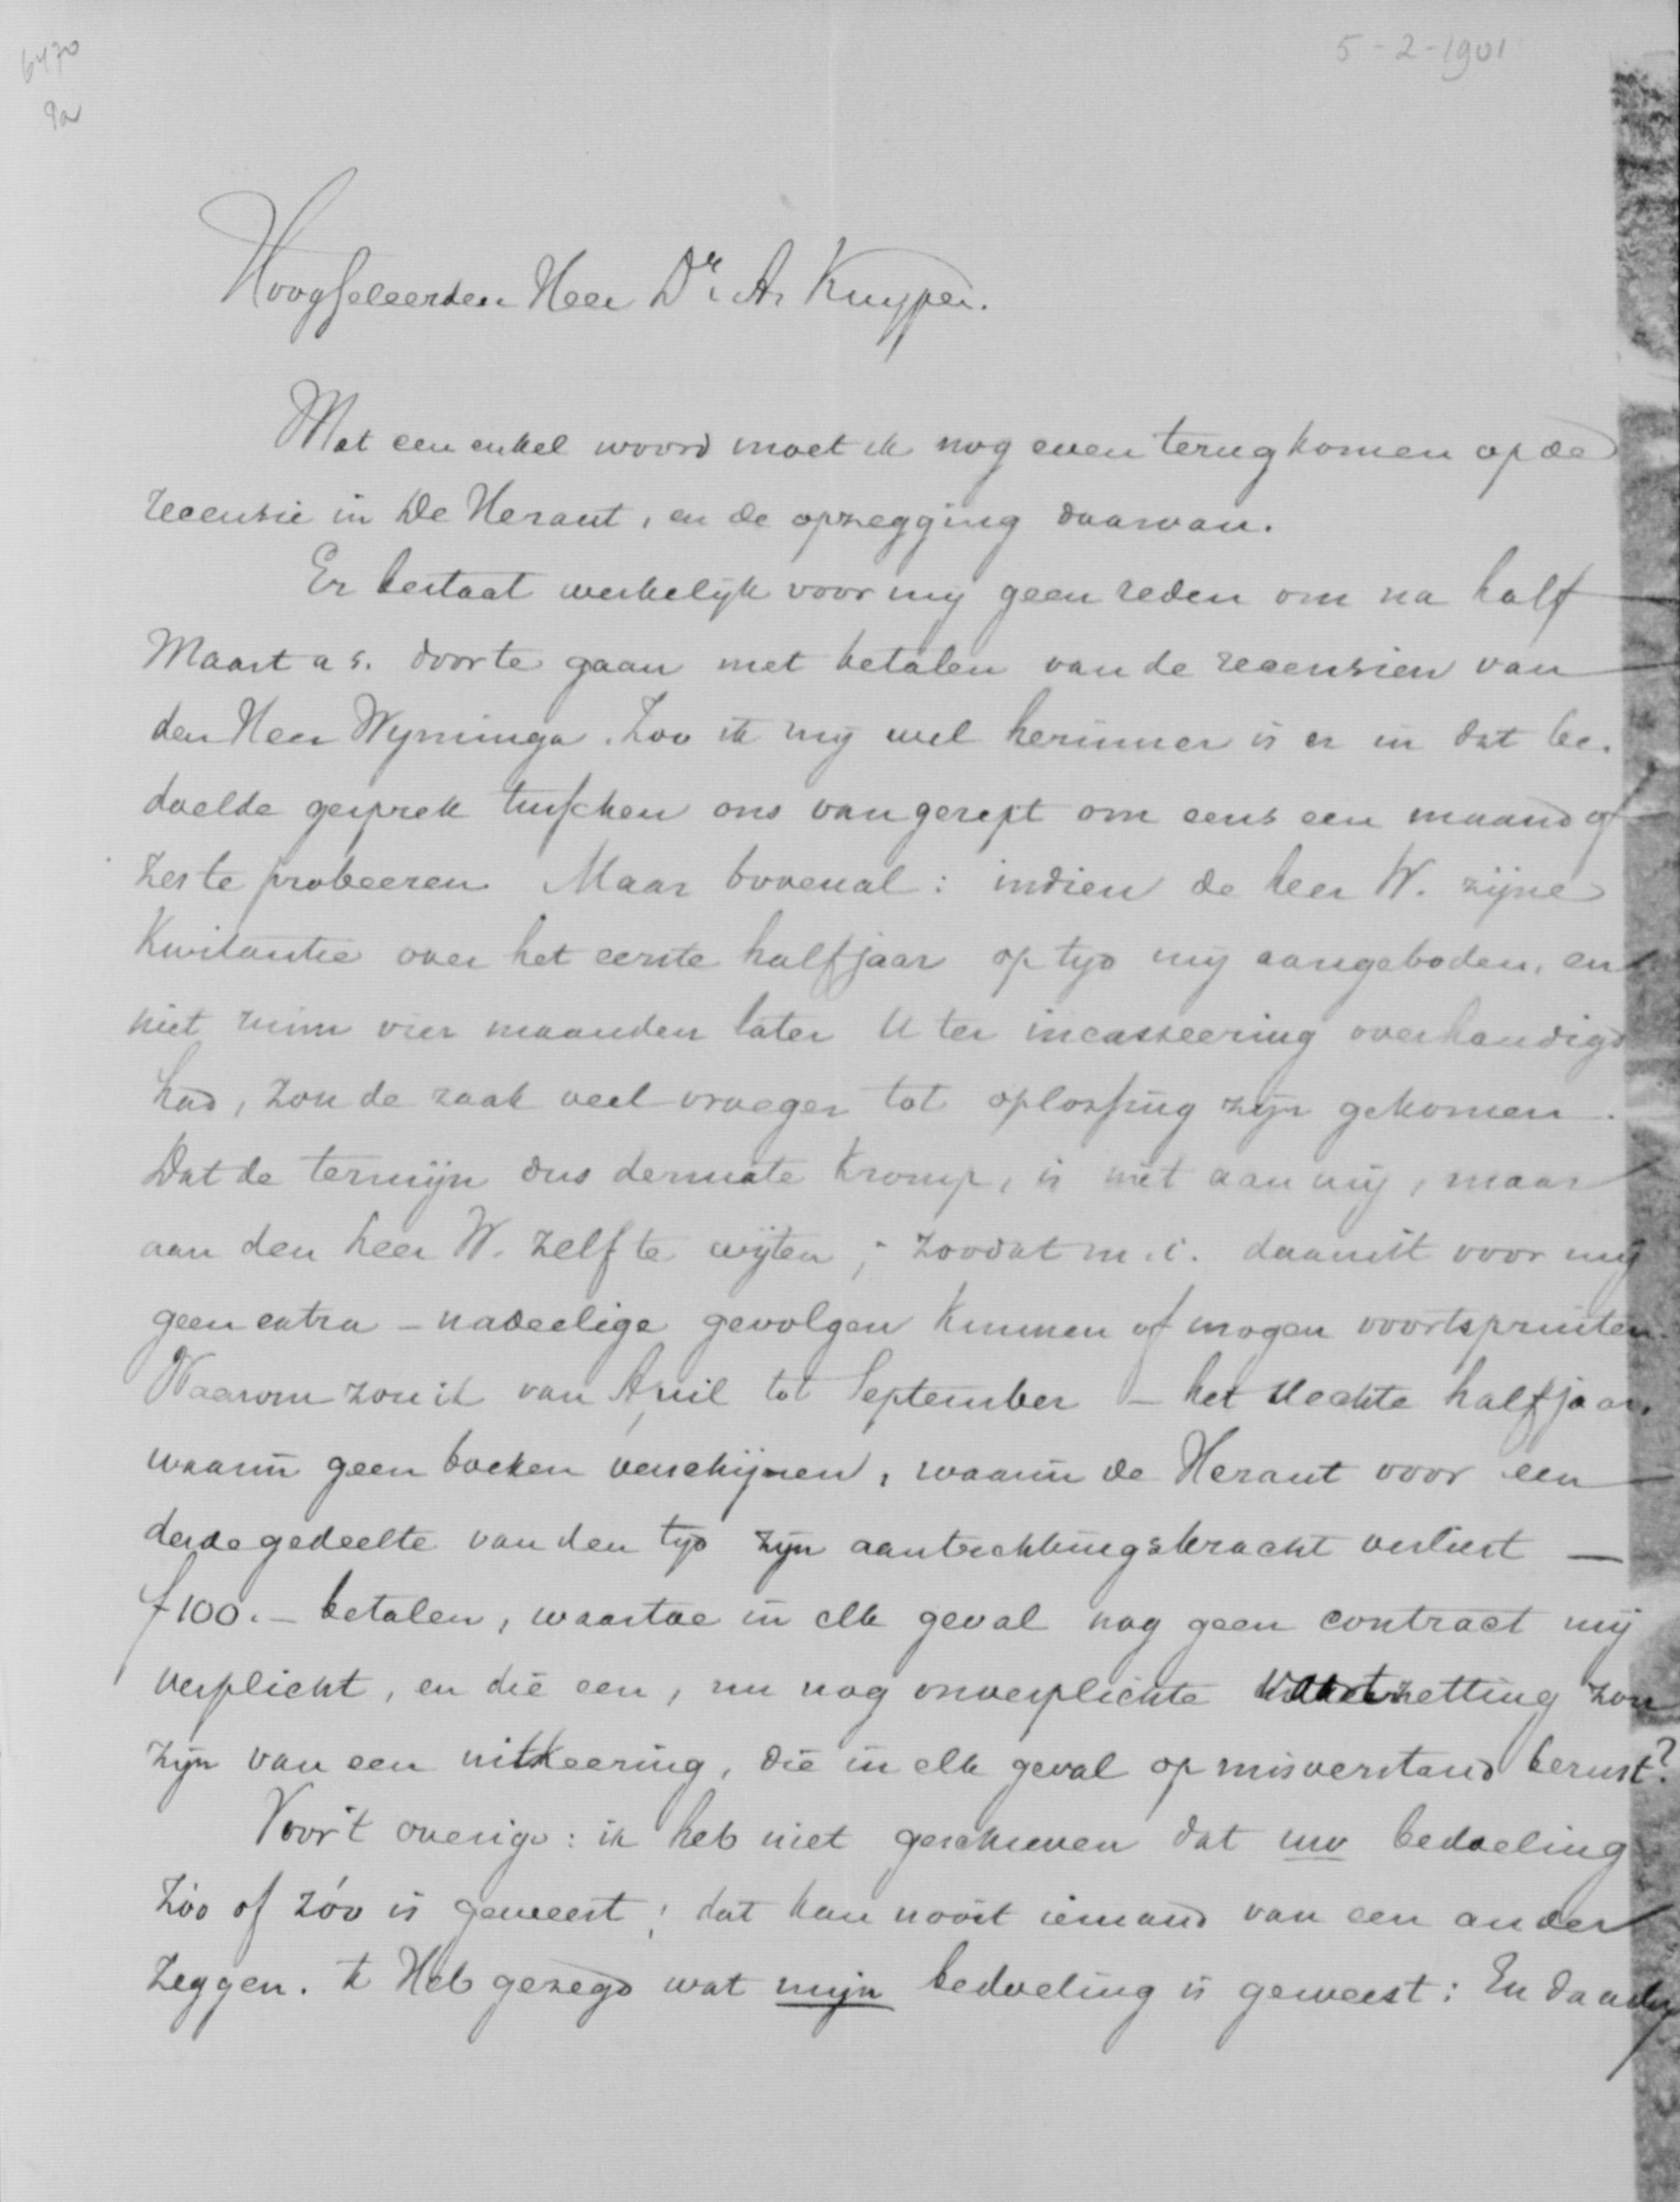 6470
9a
5-2-1901
Hooggeleerden Heer Dr. A. Kuyper.
Met een enkel woord moet ik nog even terugkomen op de
recensie in De Heraut, en de opzegging daarvan.
Er bestaat werkelijk voor mij geen reden om na half
Maart a s. door te gaan met betalen van de recensien van
den Heer Wijminga. Zoo ik mij wel herinner is er in dat be-
doelde gesprek tusschen ons van gerept om eens een maand of
zes te probeeren. Maar bovenal: indien de heer W. zijne
Kwitantie over het eerste halfjaar op tijd mij aangeboden, en
niet ruim vier maanden later U ter incasseering overhandigd
had, zou de zaak veel vroeger tot oplossing zijn gekomen.
Dat de termijn dus dermate kromp, is niet aan mij, maar
aan den heer W. zelf te wijten; zoodat m.i. daaruit voor mij
geen extra-nadeelige gevolgen kunnen of mogen voortspruiten.
Waarom zou ik van April tot September - het slechte halfjaar,
waarin geen boeken verschijnen, waarin de Heraut voor een
derde gedeelte van den tijd zijn aantrekkingskracht verliest —
f 100.- betalen, waartoe in elk geval nog geen contract mij
verplicht, en die een, nu nog onverplichte voortzetting zou
zijn van een uitkeering, die in elk geval op misverstand berust?
Voor 't overige: ik heb niet geschreven dat uw bedoeling
zóó of zóó is geweest; dat kan nooit iemand van een ander
zeggen. Ik Heb gezegd wat mijn bedoeling is geweest: En daarbij